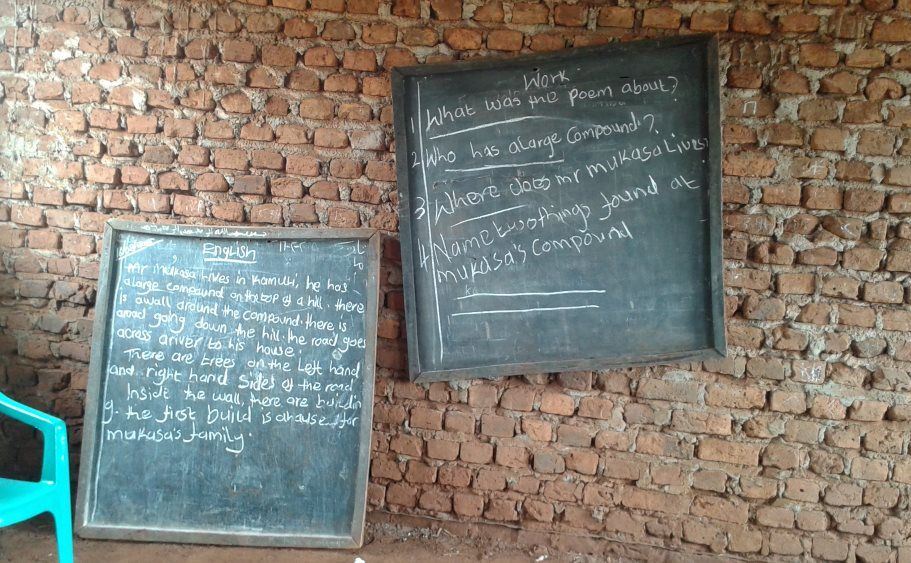 English
Mr mukasa lives in Kamuli, he has
alarge compound on the top of a hill. there
is awall around the compound. there is
aroad going down the hill. the road goes
across ariver to his house.
There are trees on the Left hand
and right hand Sides of the road
Inside the wall, there are buildin
g. the first build is ahouse for
mukasa's family.
Work
1 What was the poem about?
2 Who has alarge compound?
3 Where does mr mukasa Lives?
4 Name two things found at
mukasa's compound